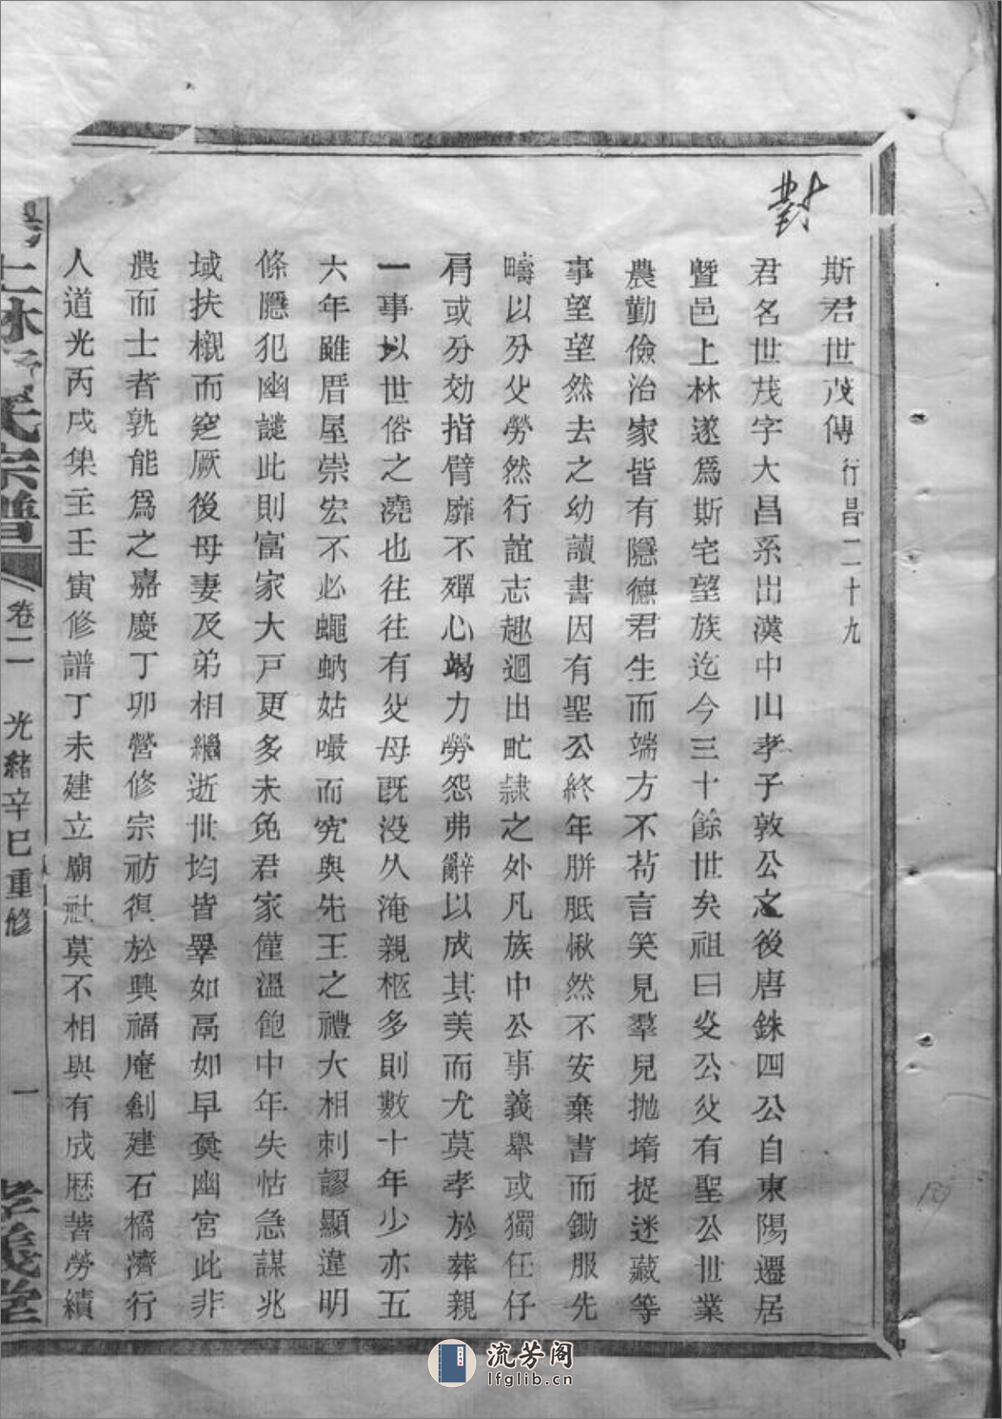 對
斯君世茂傳行昌二十九
君名世茂字大昌系出漢中山孝子敦公之後唐銖四公自東陽遷居
暨邑上林遂爲斯宅望族迄今三十餘世矣祖曰炎公父有聖公世業
農勤儉治家皆有隱德君生而端方不苟言笑見羣兒抛堶捉迷藏等
事望望然去之幼讀書因有聖公終年胼胝愀然不安棄書而鋤服先
疇以分父勞然行誼志趣迥出甿隷之外凡族中公事義舉或獨任仔
肩或分効指臂靡不殫心竭力勞怨弗辭以成其美而尤莫孝於葬親
一事以世俗之澆也往往有父母既没久淹親柩多則數十年少亦五
六年雖厝屋崇宏不必蠅蚋姑嘬而究與先王之禮大相刺謬顯違明
條隱犯幽譴此則富家大戸更多未免君家僅溫飽中年失怙急謀兆
域扶櫬而窆厥後母妻及弟相繼逝世均皆墨如鬲如早奠幽宮此非
農而士者孰能爲之嘉慶丁卯營修宗祊復於興福庵創建石橋濟行
人道光丙戌集主壬寅修譜丁未建立廟社莫不相與有成歷著勞績
上林斯氏宗譜 卷二 光緒辛巳重修 一 孝義堂
流芳阁
lfglib.cn